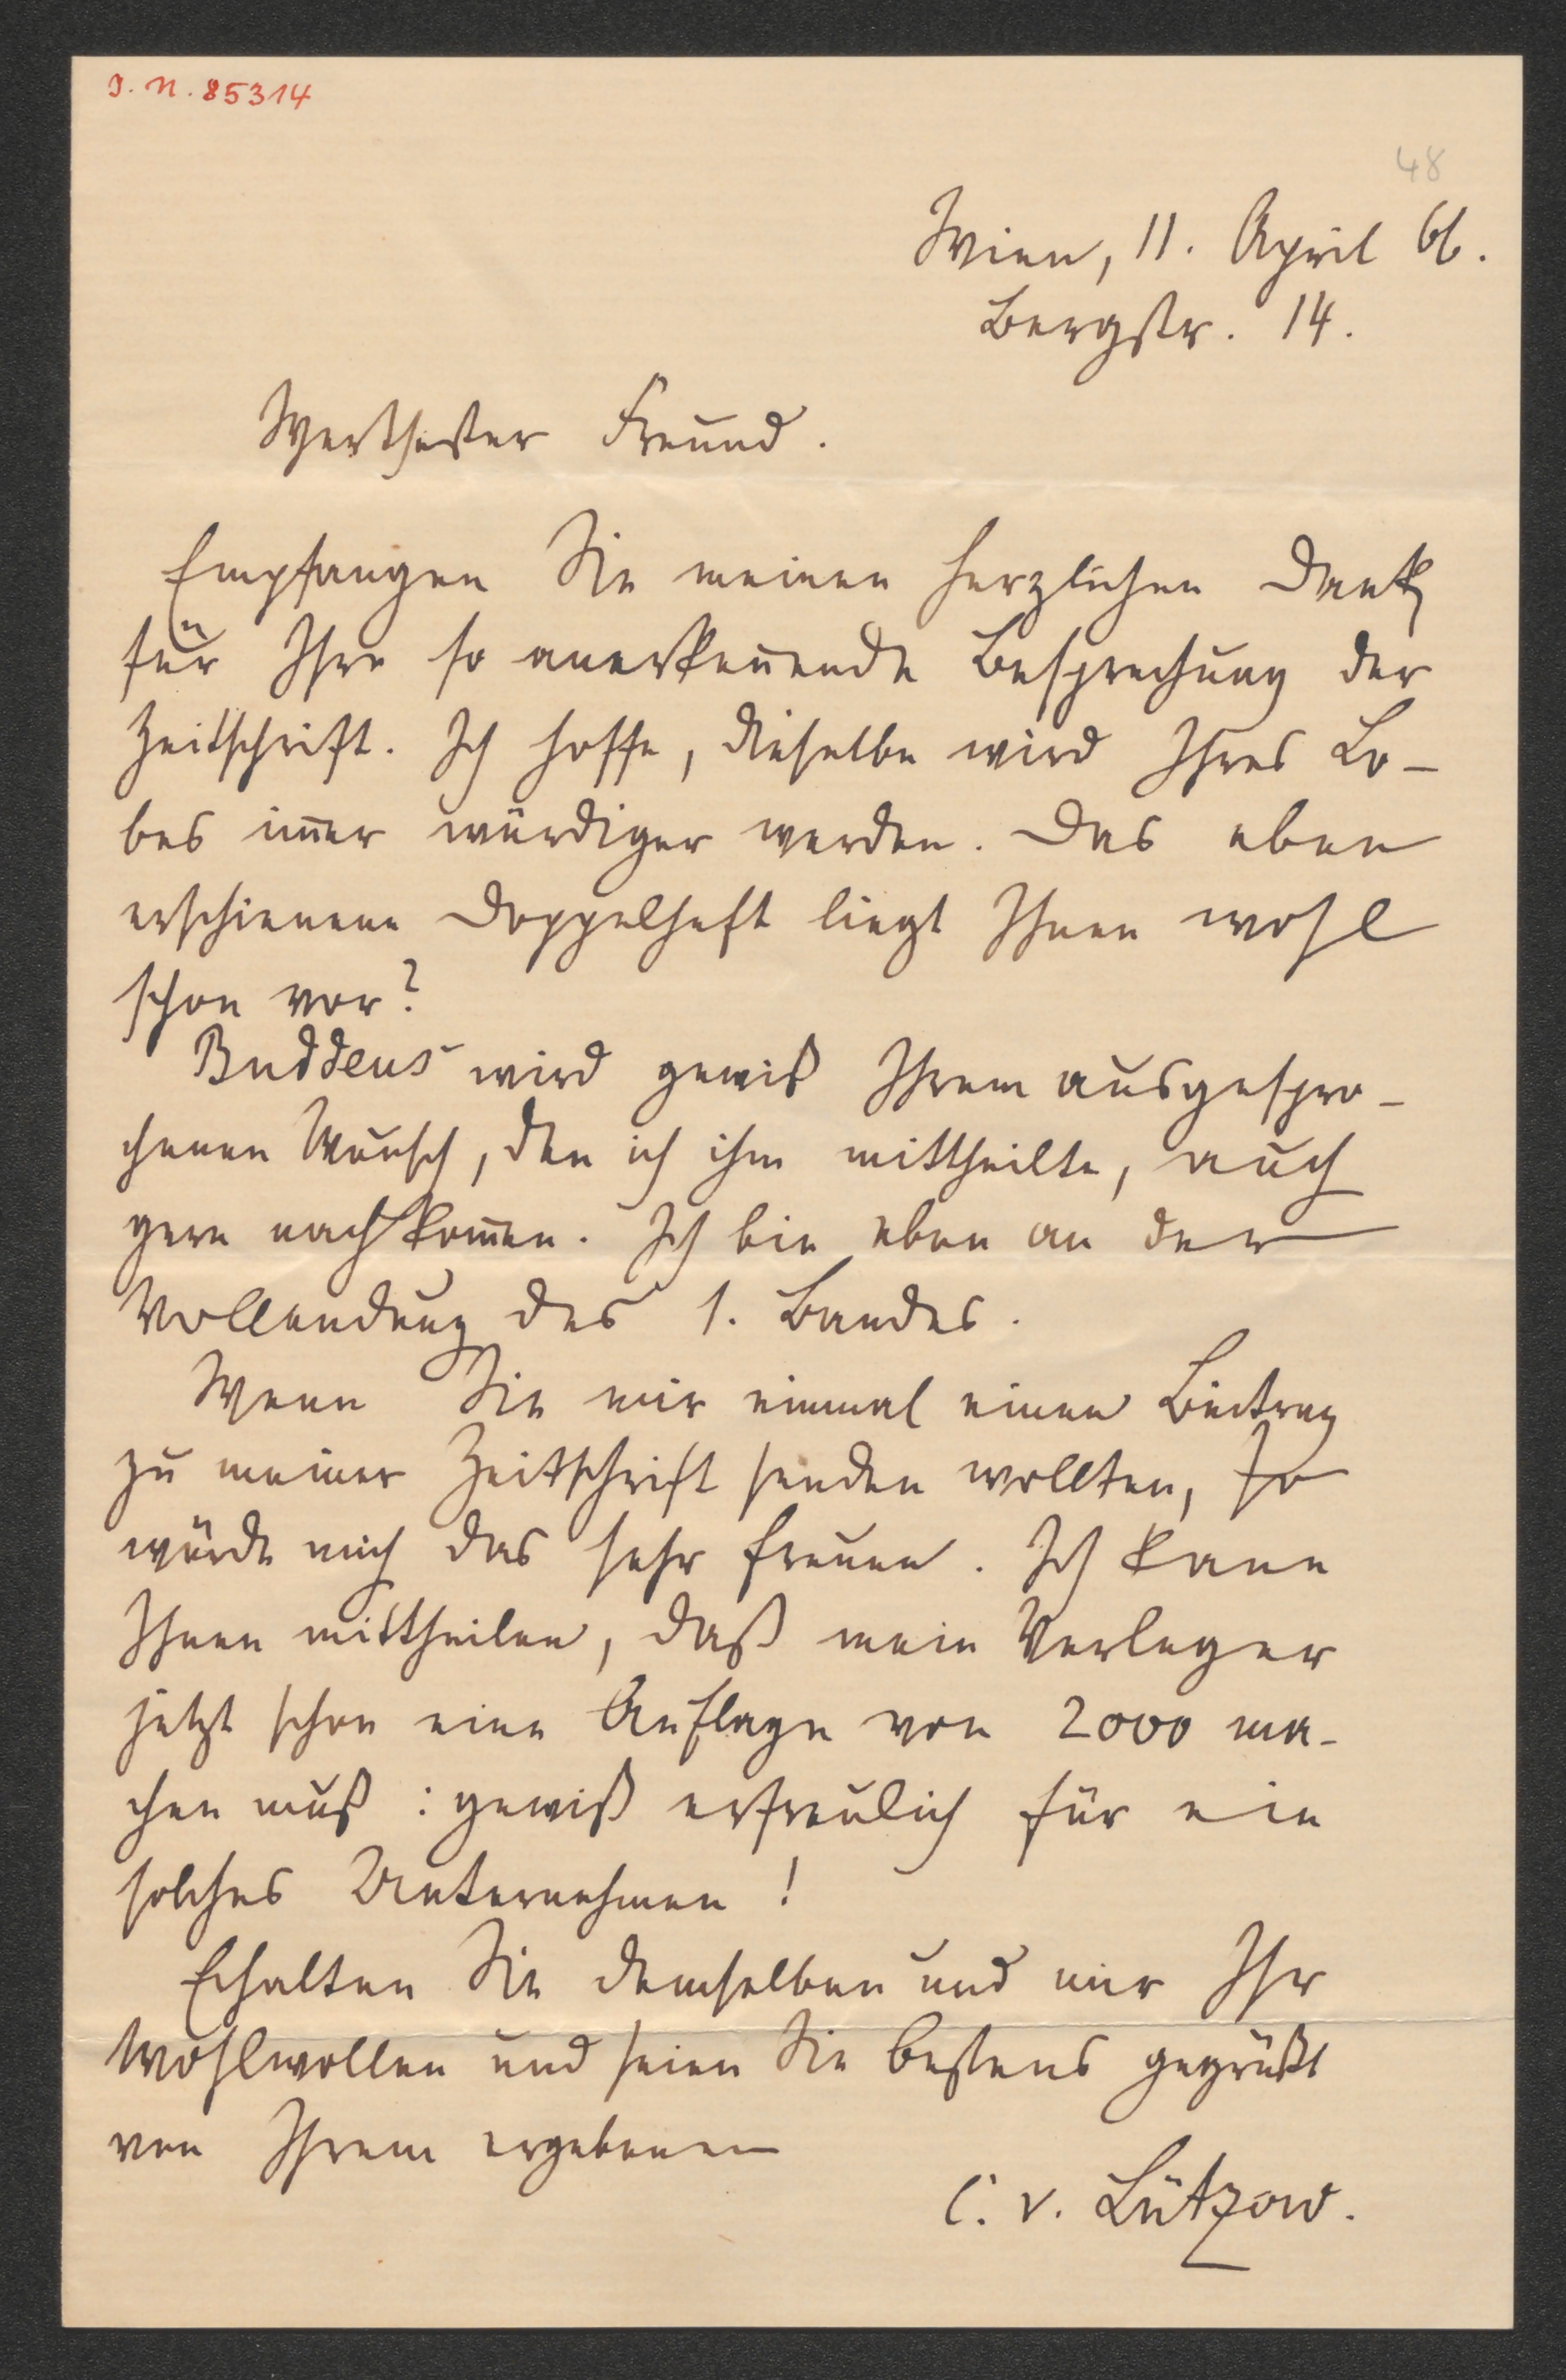 I. N. 85314
48
Wien, 11. April 66.
Bergstr. 14.
Werthester Freund.
Empfangen Sie meinen herzlichen Dank
für Ihre so anerkeñende Besprechung der
Zeitschrift. Ich hoffe, dieselbe wird Ihres Lo-
bes im̃er würdiger werden. Das eben
erschienene Doppelheft liegt Ihnen wohl
schon vor?
Buddeus wird gewiß Ihrem ausgespro-
chenen Wunsch, den ich ihm mittheilte, auch
gern nachkom̃en. Ich bin eben an der
Vollendung des 1. Bandes.
Wenn Sie mir einmal einen Beitrag
zu meiner Zeitschrift senden wollten, so
würde mich das sehr freuen. Ich kann
Ihnen mittheilen, daß mein Verleger
jetzt schon eine Auflage von 2000 ma-
chen muß: gewiß erfreulich für ein
solches Unternehmen!
Erhalten Sie demselben und mir Ihr
Wohlwollen und seien Sie bestens gegrüßt
von Ihrem ergebenen
C. v. Lützow.